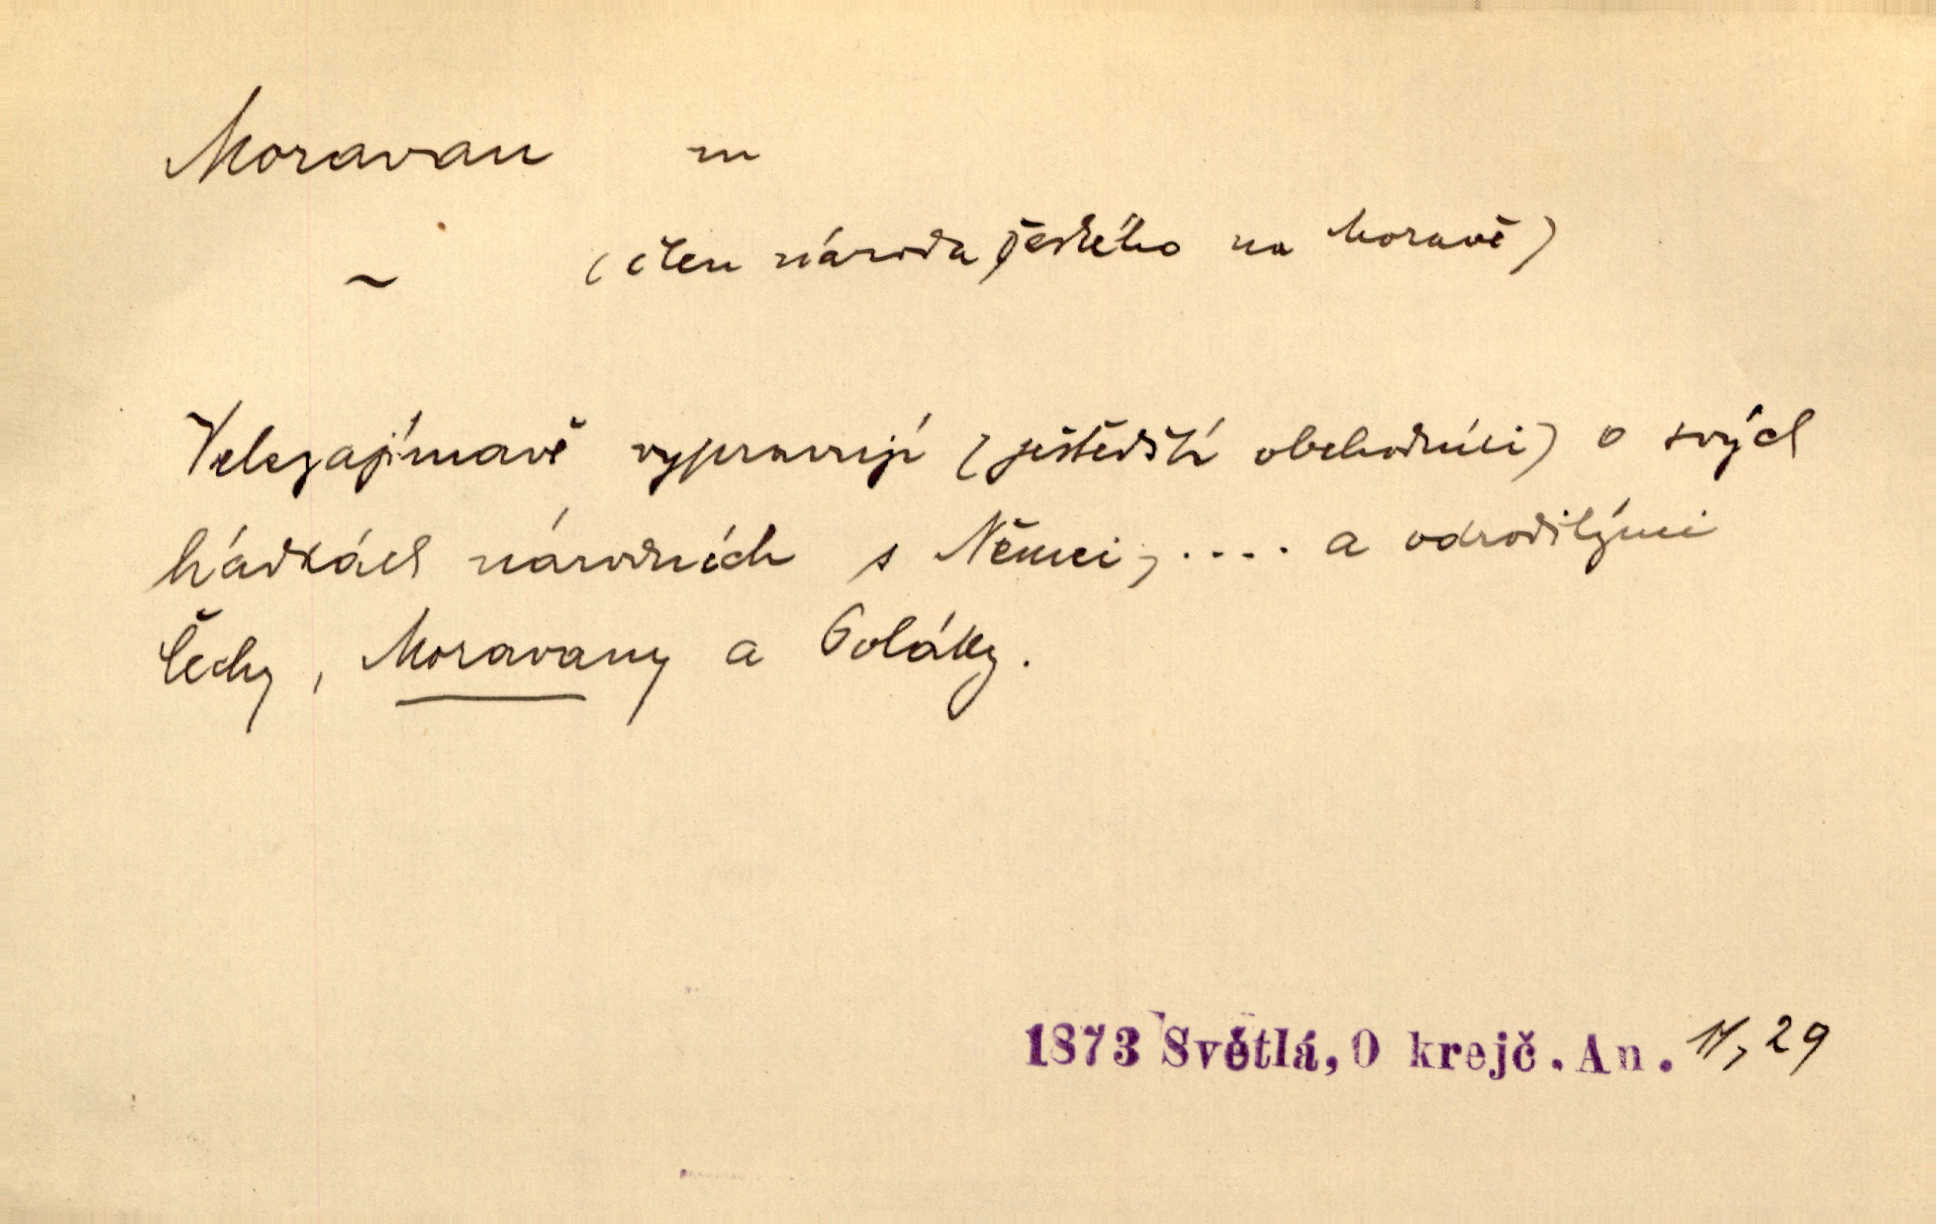 Moravan m
~ (člen národa českého na Moravě)
Velezajímavě vypravují (ještědští obchodníci) o svých
hádkách národních s Němci, .... a odrodilými
Čechy, Moravany a Poláky.
1873 Světlá, O krejč. An. 11, 29